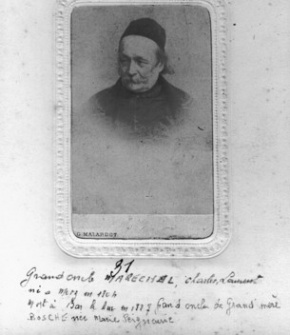 G. MALARDOT
31
Grand oncle MARECHAL, Charles Laurent
né à Metz en 1801
mort à Bar le Duc en 1887 Grand oncle de Grand'mère
née Marie